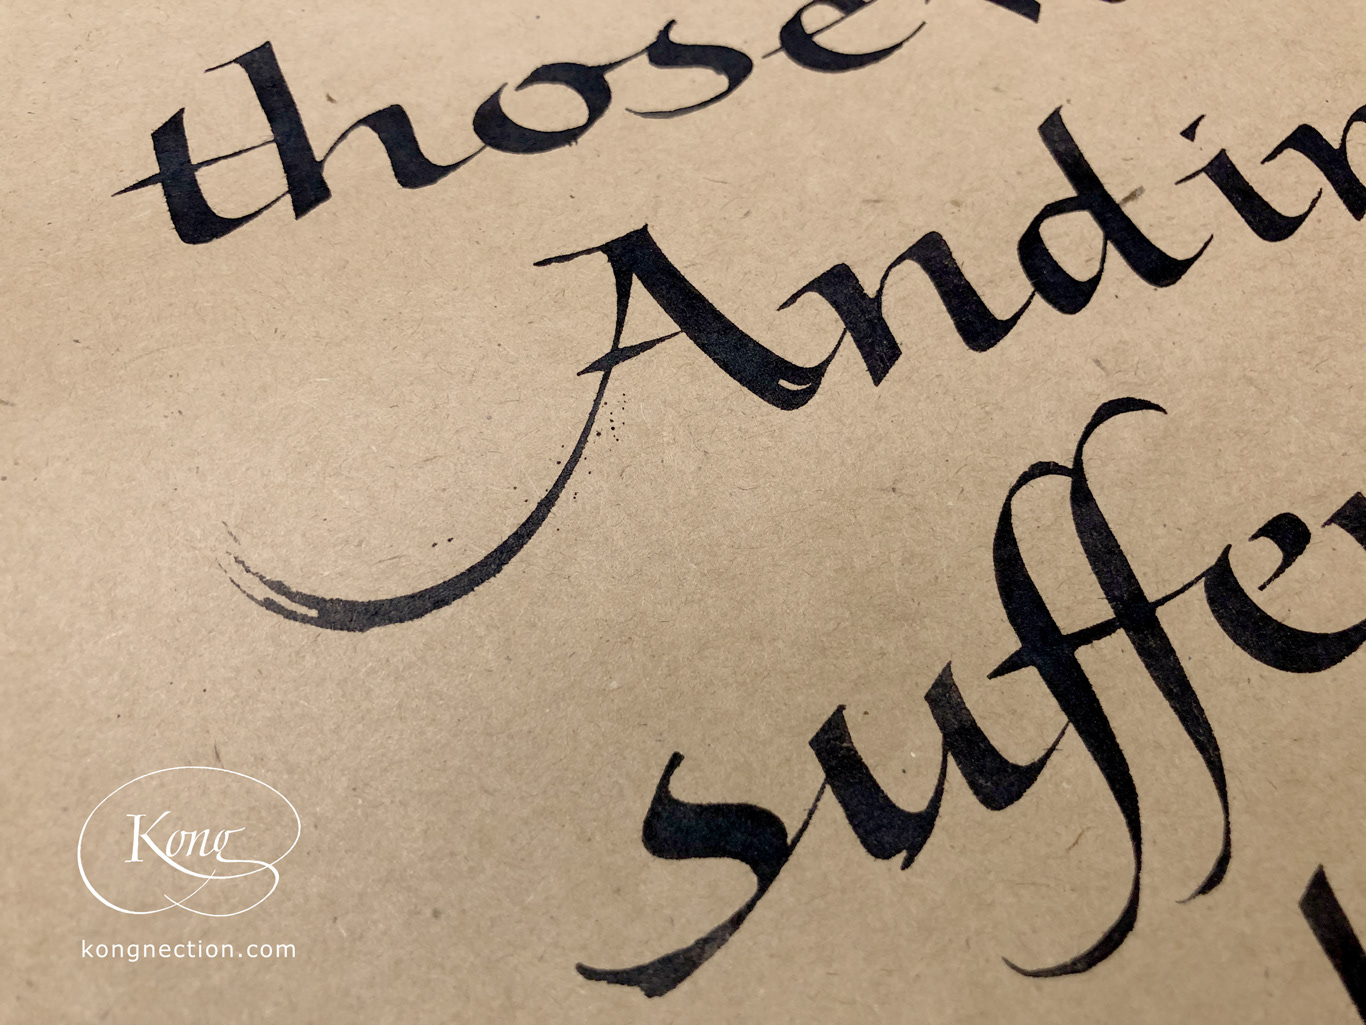 those
And in
suffe
Kong
kongnection.com